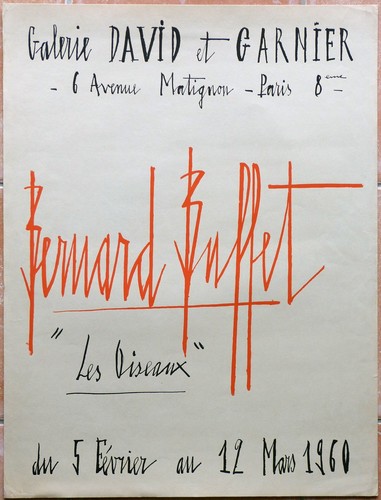 Galerie DAVID et GARNIER
- 6 Avenue Matignon - Paris 8ème -
Bernard Buffet
"Les Oiseaux"
du 5 Février au 12 Mars 1960